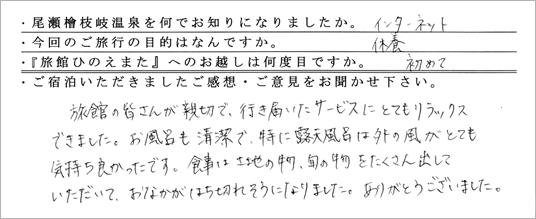 ・尾瀬檜枝岐温泉を何でお知りになりましたか。 インターネット
・今回のご旅行の目的はなんですか。 休養
・『旅館ひのえまた』へのお越しは何度目ですか。 初めて
・ご宿泊いただきましたご感想・ご意見をお聞かせ下さい。
旅館の皆さんが親切で、行き届いたサービスにとてもリラックス
できました。お風呂も清潔で、特に露天風呂は外の風がとても
気持ち良かったです。食事は土地の物、旬の物をたくさん出して
いただいて、おなかがはち切れそうになりました。ありがとうございました。